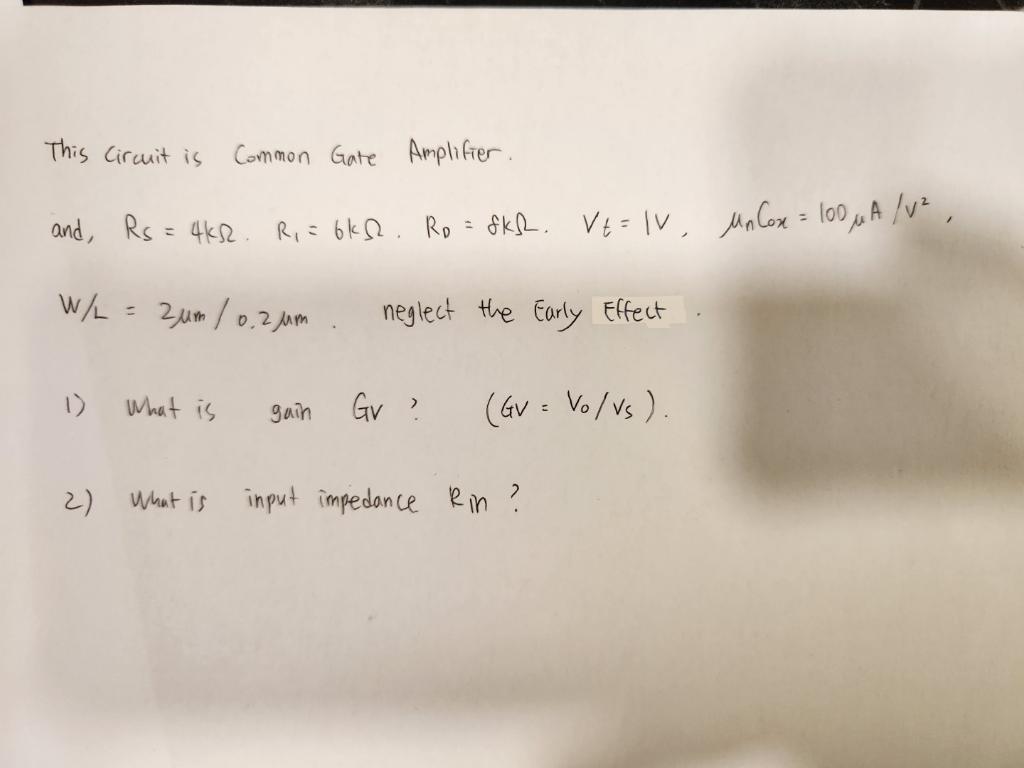 This Circuit is Common Gate Amplifier.
and, Rs = 4kΩ. R₁ = 6kΩ. R_D = 8kΩ. Vt = 1V, μnCox = 100μA/V²,
W/L = 2μm/0.2μm. neglect the Early Effect.
1) What is gain Gv? (Gv = Vo/Vs).
2) What is input impedance Rin?